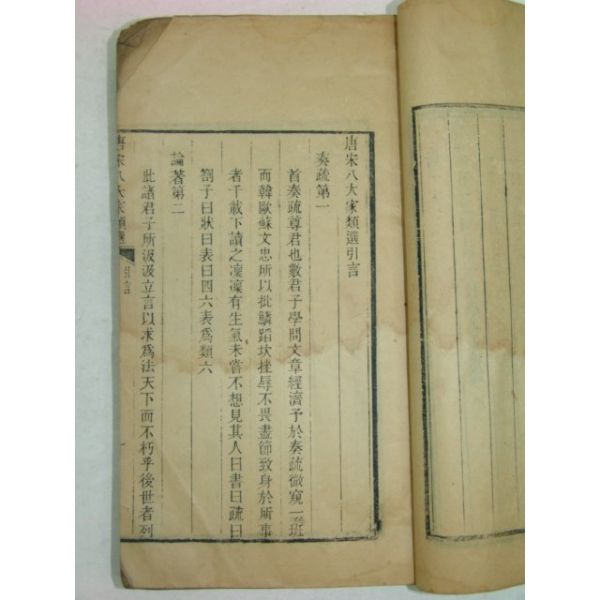 唐宋八大家類選引言
奏疏第一
首奏疏尊君也數君子學問文章經濟予於奏疏微窺一斑
而韓歐蘇文忠所以批鱗蹈坎挫辱不畏盡節致身於所事
者千載下讀之凜凜有生氣未嘗不想見其人曰書曰疏曰
劄子曰狀曰表曰四六表爲類六
論著第二
此諸君子所汲汲立言以求爲法天下而不朽乎後世者列
唐宋八大家類選